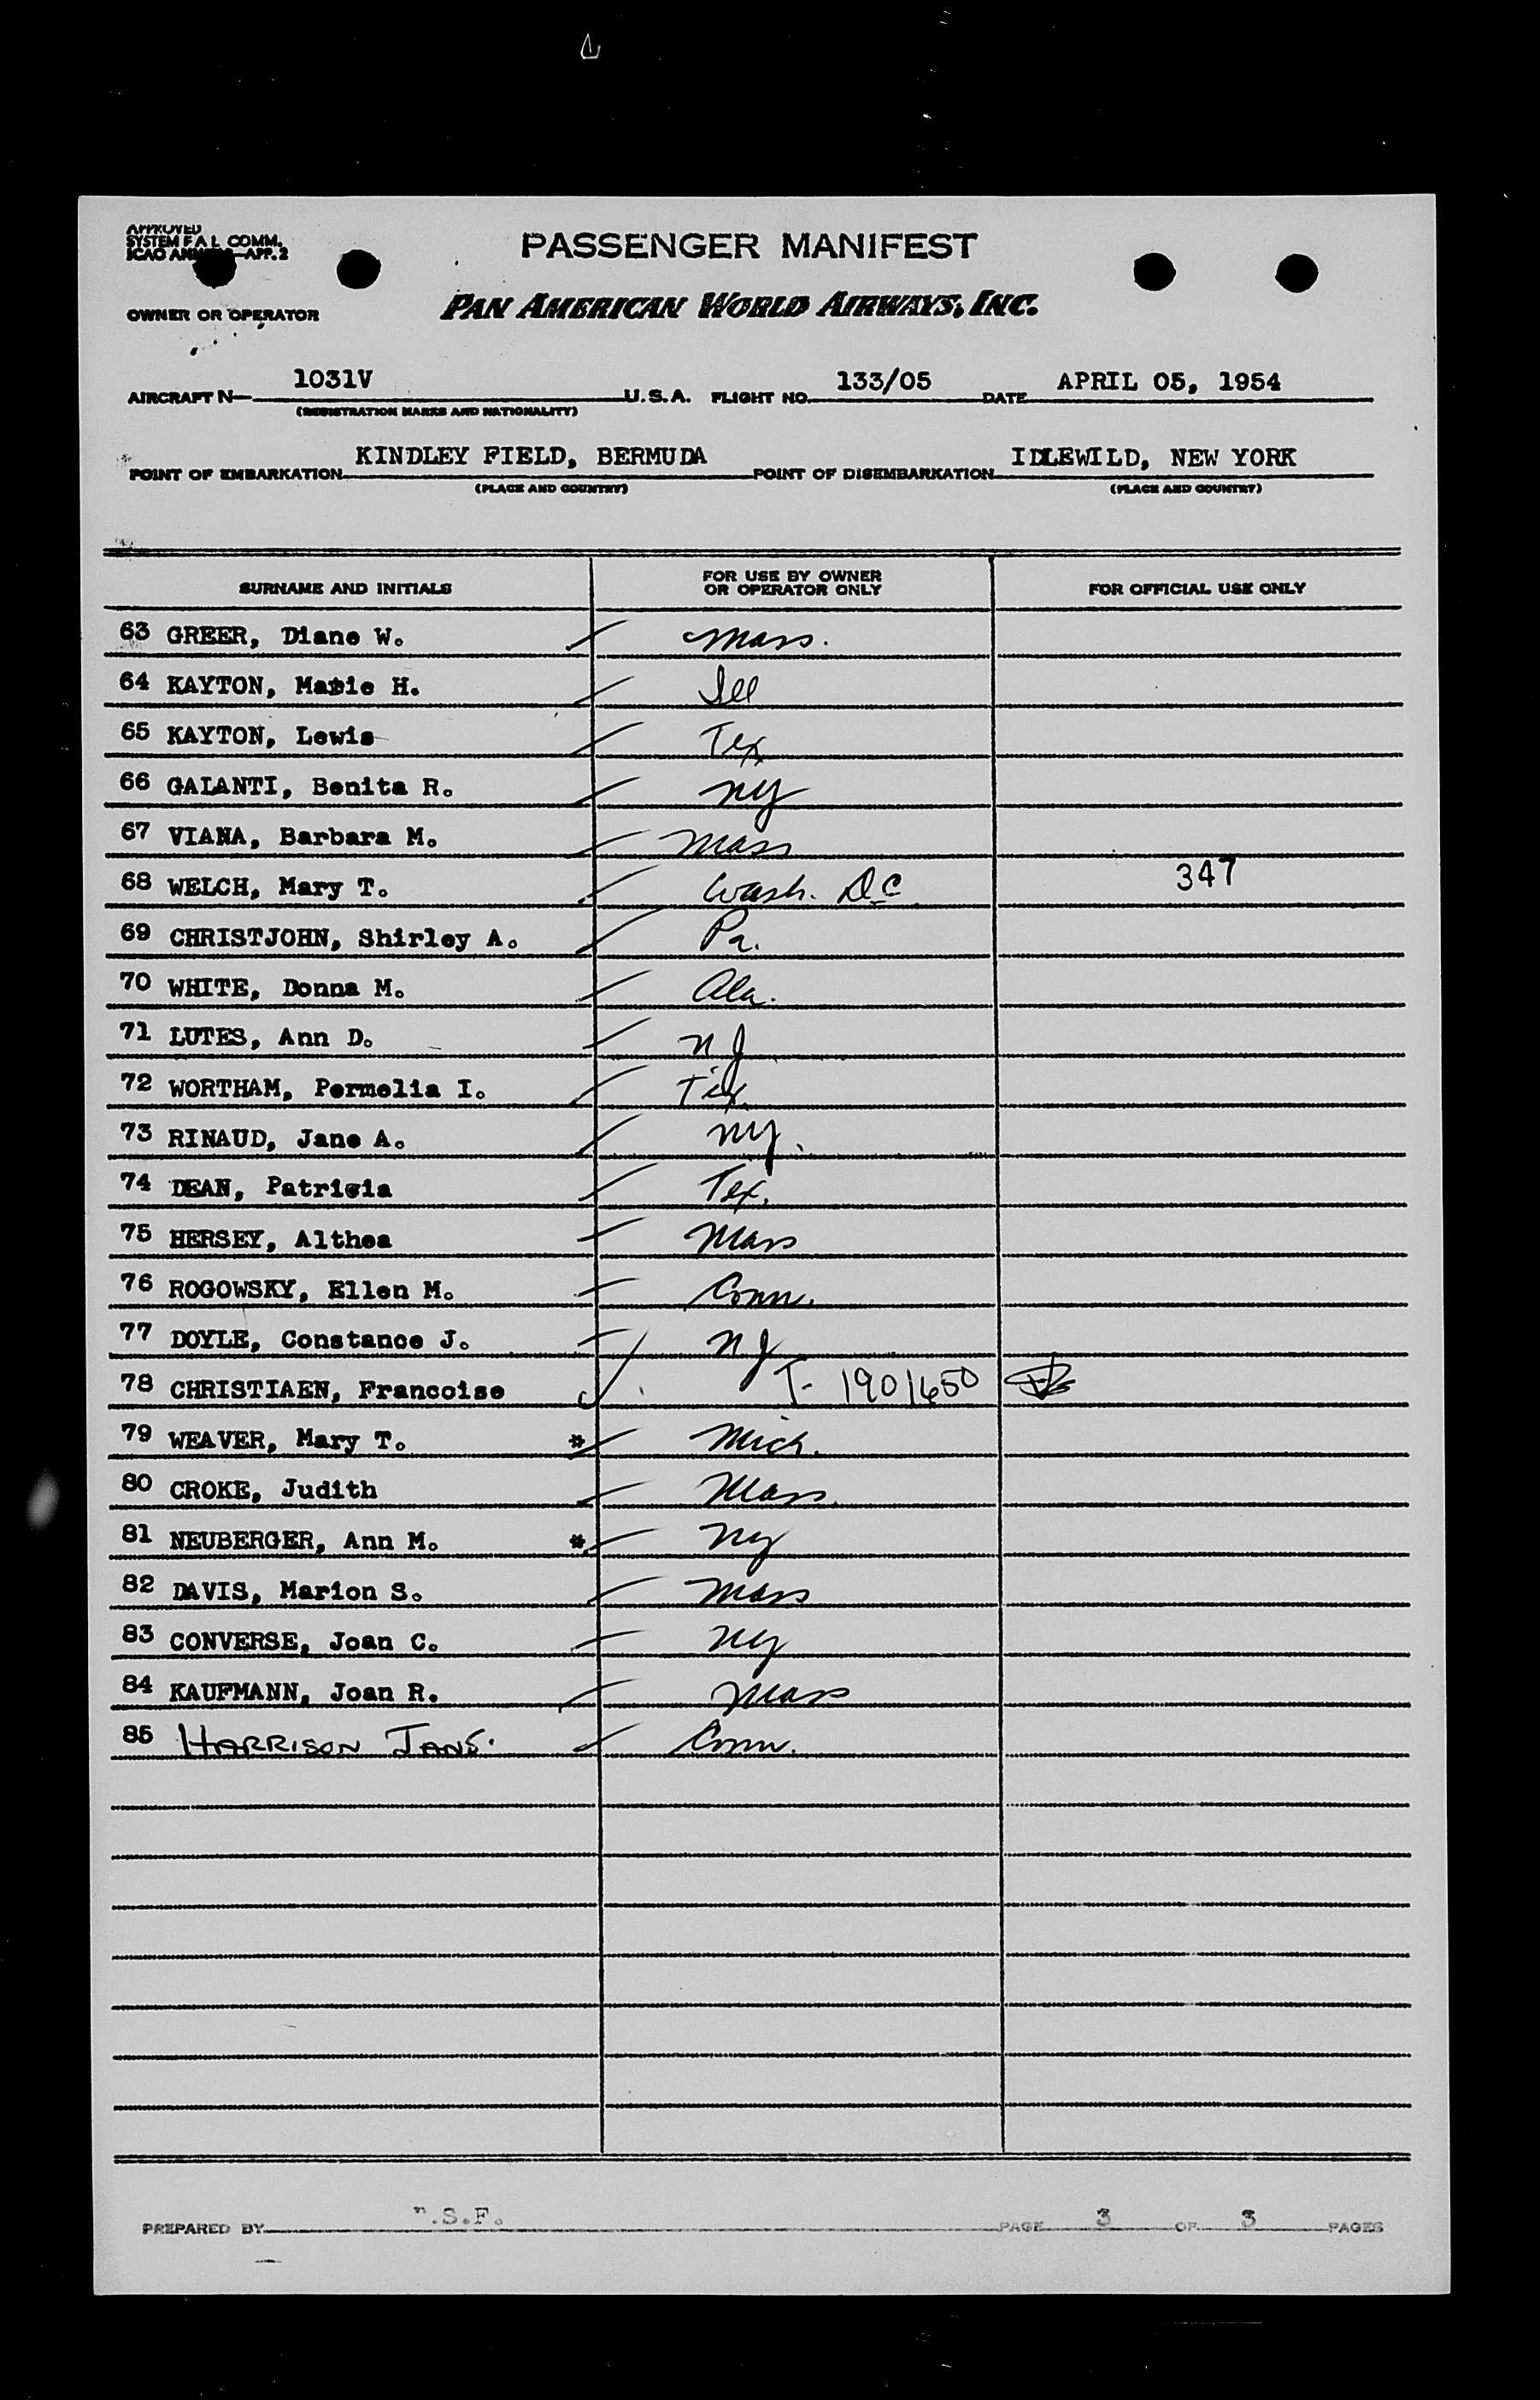 APPROVED
SYSTEM F A L COMM.
ICAO APP. 2
PASSENGER MANIFEST
OWNER OR OPERATOR
PAN AMERICAN WORLD AIRWAYS, INC.
AIRCRAFT N 1031V U.S.A. FLIGHT NO. 133/05 DATE APRIL 05, 1954
(REGISTRATION MARKS AND NATIONALITY)
POINT OF EMBARKATION KINDLEY FIELD, BERMUDA POINT OF DISEMBARKATION IDLEWILD, NEW YORK
(PLACE AND COUNTRY) (PLACE AND COUNTRY)
SURNAME AND INITIALS FOR USE BY OWNER OR OPERATOR ONLY FOR OFFICIAL USE ONLY
63 GREER, Diane W. Mass.
64 KAYTON, H. Ill
65 KAYTON, Lewis Tex
66 GALANTI, Benita R. NY
67 VIANA, Barbara M. Mass
68 WELCH, Mary T. Wash. DC 347
69 CHRISTJOHN, Shirley A. Pa.
70 WHITE, Donna M. Ala.
71 LUTES, Ann D. NJ
72 WORTHAM, Permelia I. Tex
73 RINAUD, Jane A. NY.
74 DEAN, Patricia Tex.
75 HERSEY, Althea Mass
76 ROGOWSKY, Ellen M. Conn.
77 DOYLE, Constance J. NJ
78 CHRISTIAEN, Francoise T- 1901650
79 WEAVER, Mary T. * Mich.
80 CROKE, Judith Mass.
81 NEUBERGER, Ann M. * NY
82 DAVIS, Marion S. Mass
83 CONVERSE, Joan C. NY
84 KAUFMANN, Joan R. Mass
85 HARRISON JANE. Conn.
PREPARED BY .S.F. PAGE 3 OF 3 PAGES